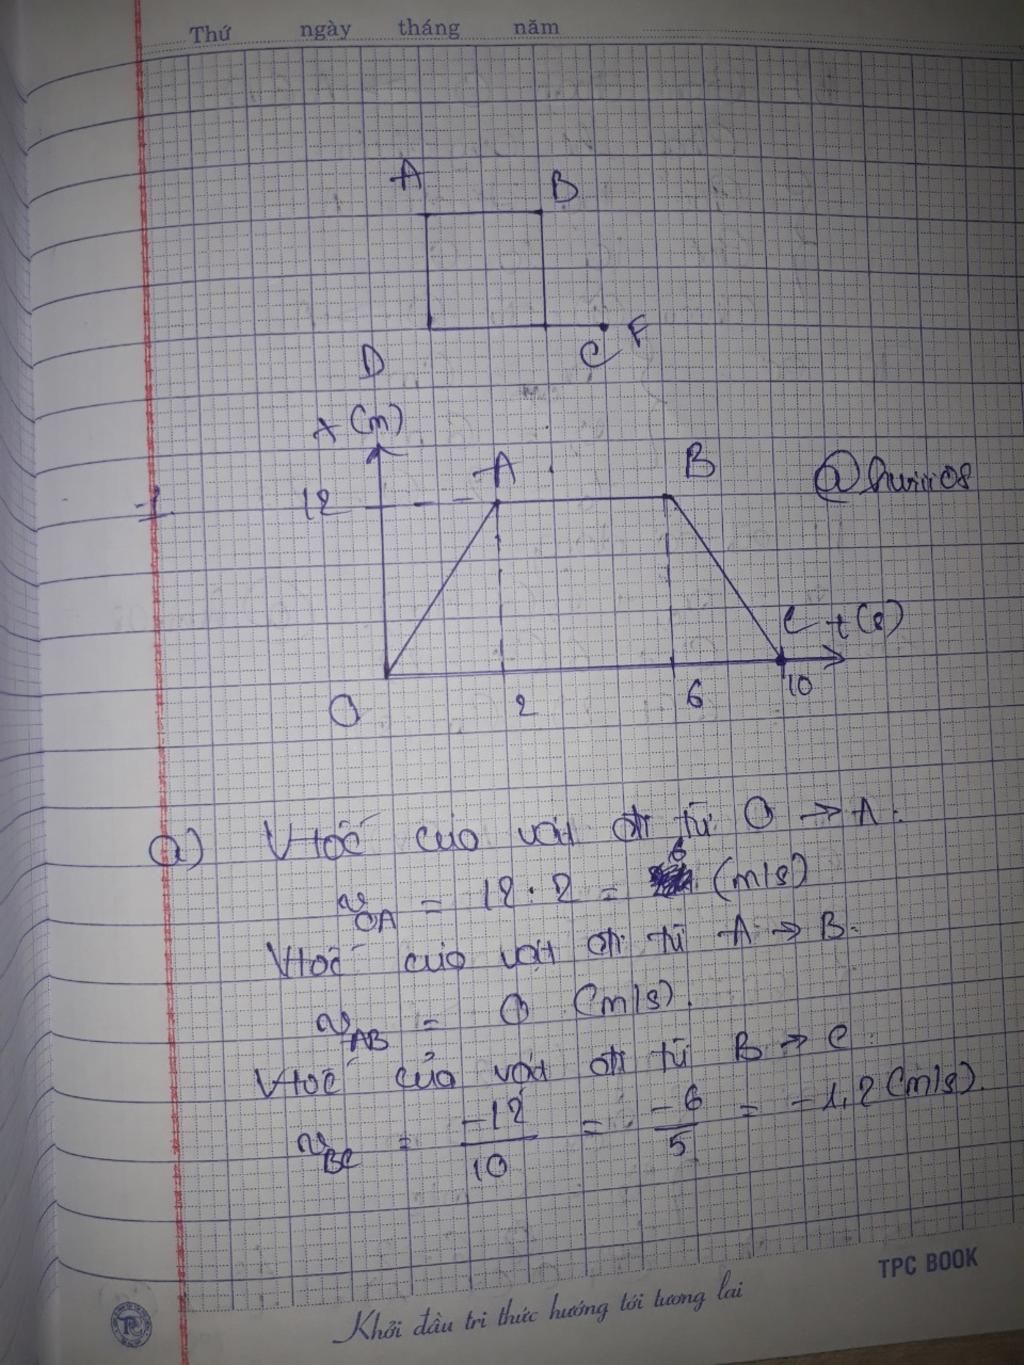 Thứ ngày tháng năm
A B
D C F
x (m)
A B
12
@huniii08
C t(s)
O 2 6 10
a) Vtốc của vật đi từ O → A:
v_OA = 12 : 2 = 6 (m/s)
Vtốc của vật đi từ A → B.
v_AB = 0 (m/s).
Vtốc của vật đi từ B → C:
v_BC = -12/10 = -6/5 = -1,2 (m/s).
TPC BOOK
Khởi đầu tri thức hướng tới tương lai